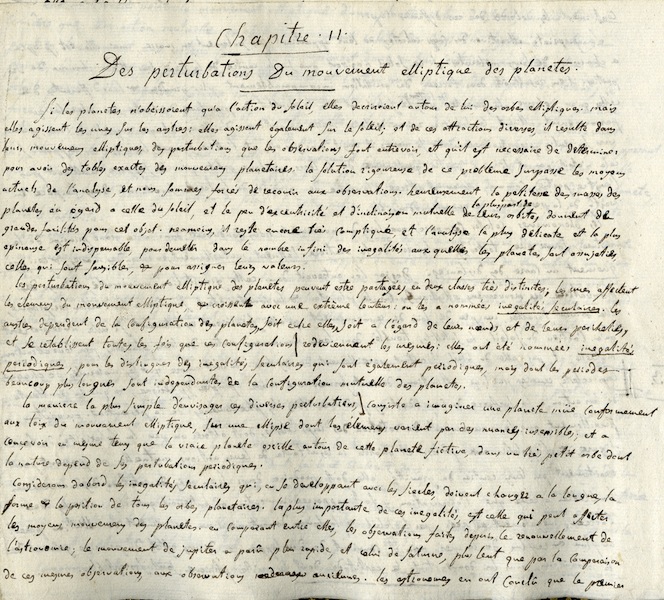 Chapitre II.
Des perturbations Du mouvement elliptique des planetes.
Si les planetes n'obeissoient qu'a l'action du soleil elles decriroient autour de lui des orbes elliptiques. mais
elles agissent les unes sur les autres: elles agissent egalement sur le soleil; et de ces attractions diverses il resulte dans
leurs mouvemens elliptiques des perturbations que les observations font entrevoir, et qu'il est necessaire de determiner
pour avoir des tables exactes des mouvemens planetaires. la solution rigoureuse de ce probleme surpasse les moyens
actuels de l'analyse et nous sommes forcés de recourir aux observations. heureusement la petitesse des masses des
planetes eu egard a celle du soleil, et le peu d'excentricité et d'inclinaison mutuelle de la pluspart de leurs orbites, donnent de
grandes facilités pour cet objet. neamoins, il reste encore très compliqué et l'analyse la plus délicate et la plus
epineuse est indispensable pour demeler dans le nombre infini des inegalités aux quelles les planetes sont assujeties
celles qui sont sensibles, et pour assigner leurs valeurs.
les perturbations du mouvement elliptique des planetes peuvent estre partagées en deux classes très distinctes, les unes affectent
les elemens du mouvement elliptique et croissent avec une extrême lenteur. on les a nommées inegalités seculaires. les
autres dependent de la configuration des planetes, soit entre elles, soit a l'égard de leurs nœuds et de leurs perihelies,
et se retablissent toutes les fois que ces configurations redeviennent les mesmes: elles ont été nommées inegalités
periodiques, pour les distinguer des inegalités seculaires qui sont egalement periodiques, mais dont les periodes
beaucoup plus longues sont independantes de la configuration mutuelle des planetes.
la maniere la plus simple d'envisager ces diverses perturbations consiste a imaginer une planete müe conformement
aux loix du mouvement elliptique, sur une ellipse dont les elemens varient par des nuances insensibles; et a
concevoir en mesme tems que la vraie planete oscille autour de cette planete fictive dans un très petit orbe dont
la nature depend de ses perturbations periodiques.
Considerons dabord les inegalités seculaires qui, en se developpant avec les siecles doivent changer a la longue la
forme et la position de tous les orbes planetaires. la plus importante de ces inegalités est celle qui peut affecter
les moyens mouvemens des planetes. en comparant entre elles les observations faites depuis le renouvellement de
l'astronomie; le mouvement de jupiter a paru plus rapide, et celui de saturne, plus lent que par la comparaison
de ces mesmes observations aux observations anciennes. les astronomes en ont conclu que le premier